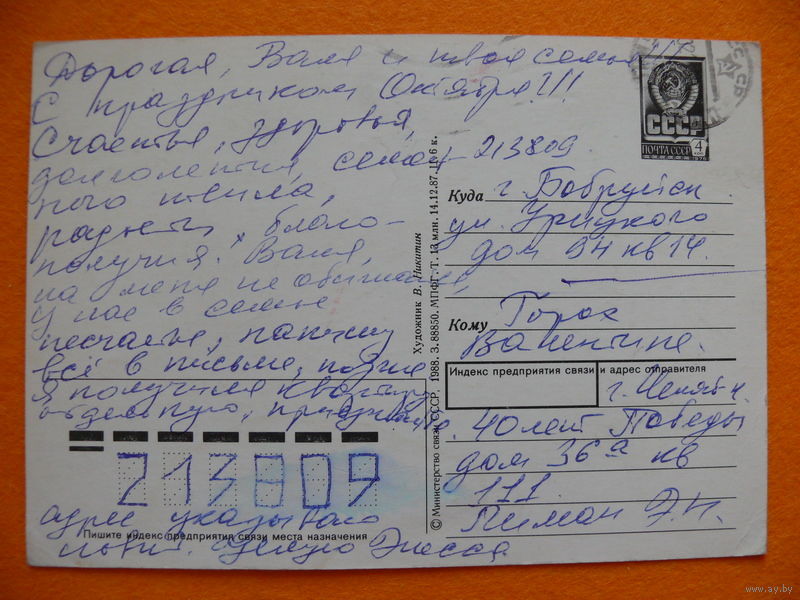 Дорогая, Валя и твоя семья!
С праздником Октября!!!
Счастья, здоровья,
долголетия, семей-
ного тепла,
радости, благо-
получия. Валя,
на меня не обижайся,
у нас в семье
несчастье, напишу
всё в письме, позже
Я получила квартиру
отдельную, приезжайте.
213809
адрес указываю
Пишите индекс предприятия связи места назначения
целую
© Министерство связи СССР. 1988. З. 88850. МПФГ. Т. 13 млн. 14.12.87. Ц. 6 к.
Художник В. Никитин
СССР
ПОЧТА СССР
4
213809
Куда г. Бобруйск
ул. Урицкого
дом 94 кв 14.
Кому Горох
Валентине.
Индекс предприятия связи и адрес отправителя
г. Челяб-к
40 лет Победы
дом 36а кв
111
www.ay.by